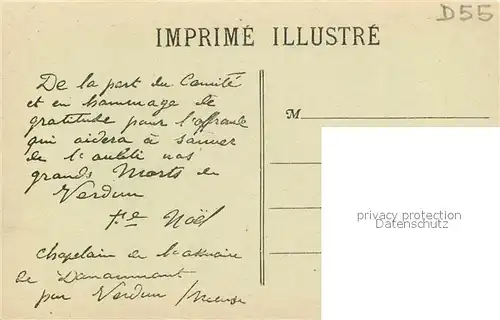 D55
IMPRIMÉ ILLUSTRÉ
De la part du Comité
et en hommage de
gratitude pour l'offrande
qui aidera à sauver
de l'oubli nos
grands Morts de
Verdun
Noël
chapelain de l'ossuaire
de Douaumont
par Verdun /Meuse
M
privacy protection
www.oldthing.de